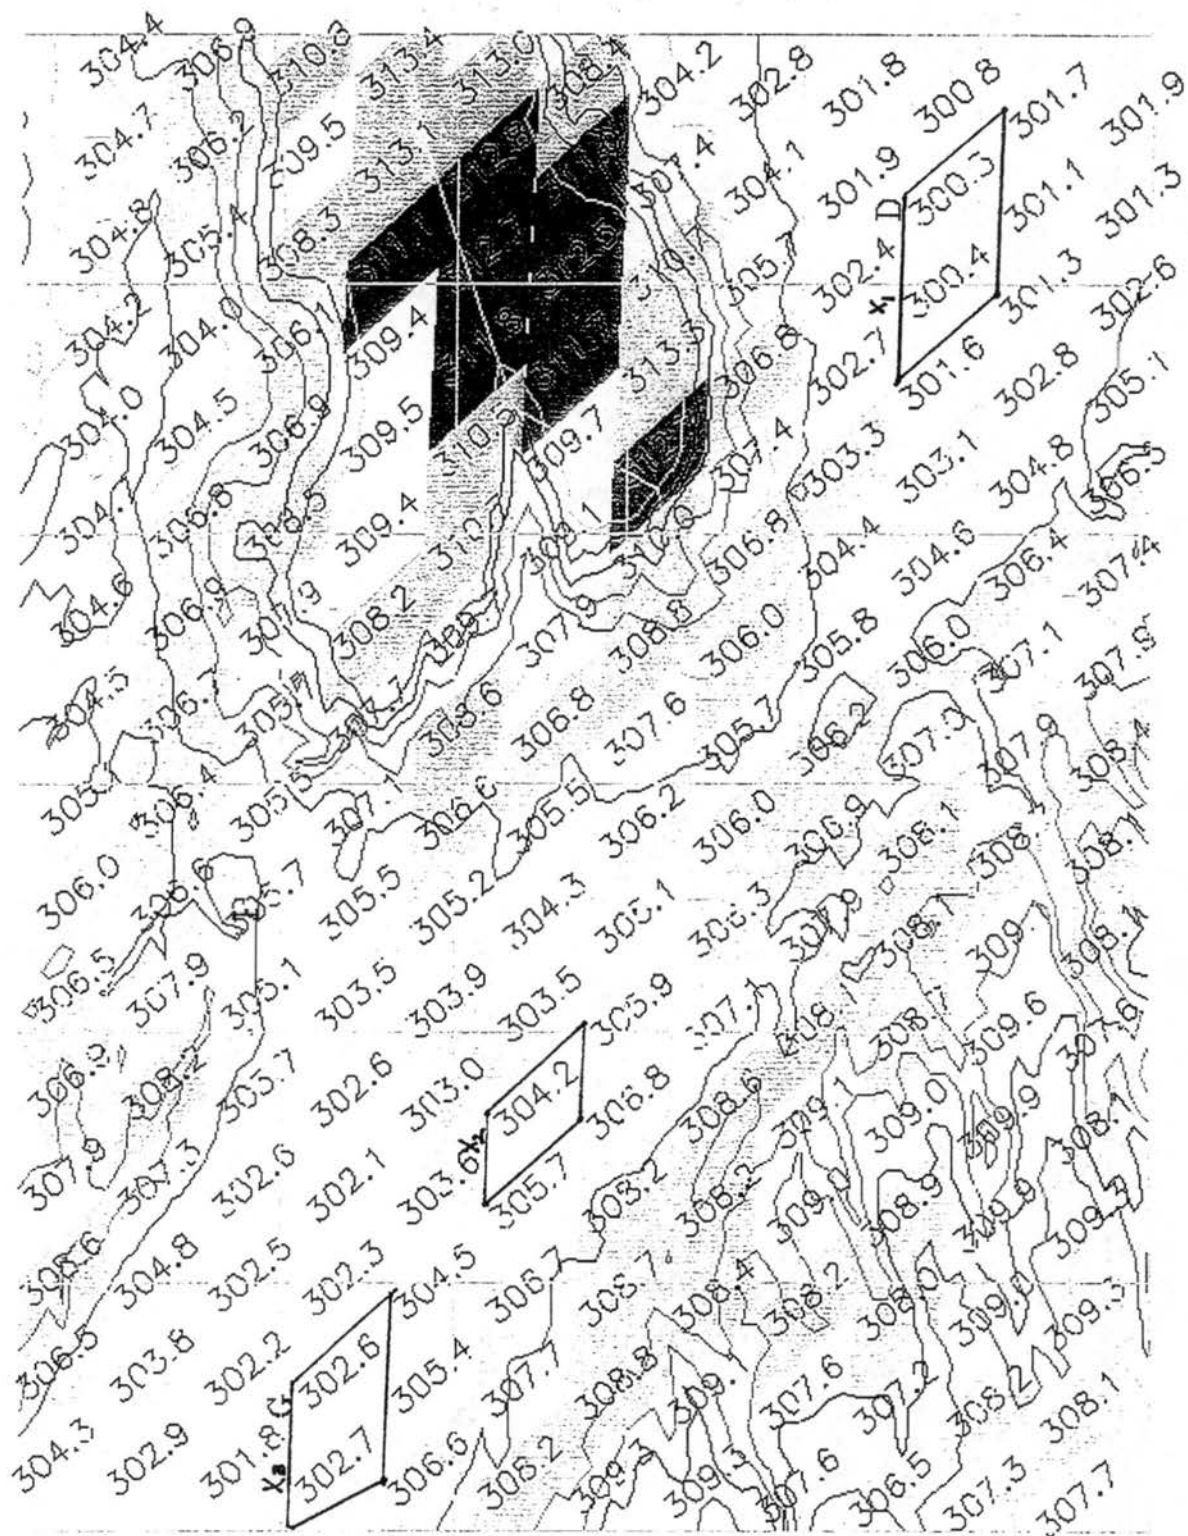 304.4 306.9 310.8 313.4 313.0 308.4 304.2 302.8 301.8 300.8 301.7 301.9
304.7 306.2 309.5 313.1 307.4 304.1 301.9 D 300.3 301.1 301.3
305.4 308.3 310.7 305.7 302.4 X1 300.4 301.3 302.6
304.2 304.0 306.1 309.4 313.3 306.8 302.7 301.6 302.8 305.1
304.0 304.5 306.9 309.5 309.7 307.4 303.3 303.1 304.8 306.5
306.8 308.5 309.4 310.0 306.8 304.4 304.6 306.4 307.4
304.6 306.9 308.2 307.9 308.8 306.0 305.8 306.0 307.1 307.9
304.5 306.7 307.7 308.6 306.8 307.6 305.7 306.2 307.0 307.9 308.4
306.4 305.5 307.1 306.6 305.5 306.2 306.0 306.9 308.1 308.1
306.0 306.6 305.7 305.5 305.2 304.3 305.1 306.3 307.9 308.7 308.1
306.5 307.9 305.1 303.5 303.9 303.5 305.9 307.1 309.6
306.9 308.2 303.7 302.6 303.0 304.2 306.8 308.6 309.1 309.0 309.9
307.9 307.3 302.6 302.1 303.6 X2 305.7 308.2 308.2 309.0 308.9 309.9 309.3
306.6 304.8 302.5 302.3 304.5 306.7 308.7 308.4 308.2 308.0 309.0 309.3
306.5 303.8 302.2 302.6 305.4 307.7 308.8 307.6 307.2 308.2 308.1
304.3 302.9 301.8 G X3 302.7 306.6 308.2 309.3 309.3 307.6 306.5 307.3 307.7